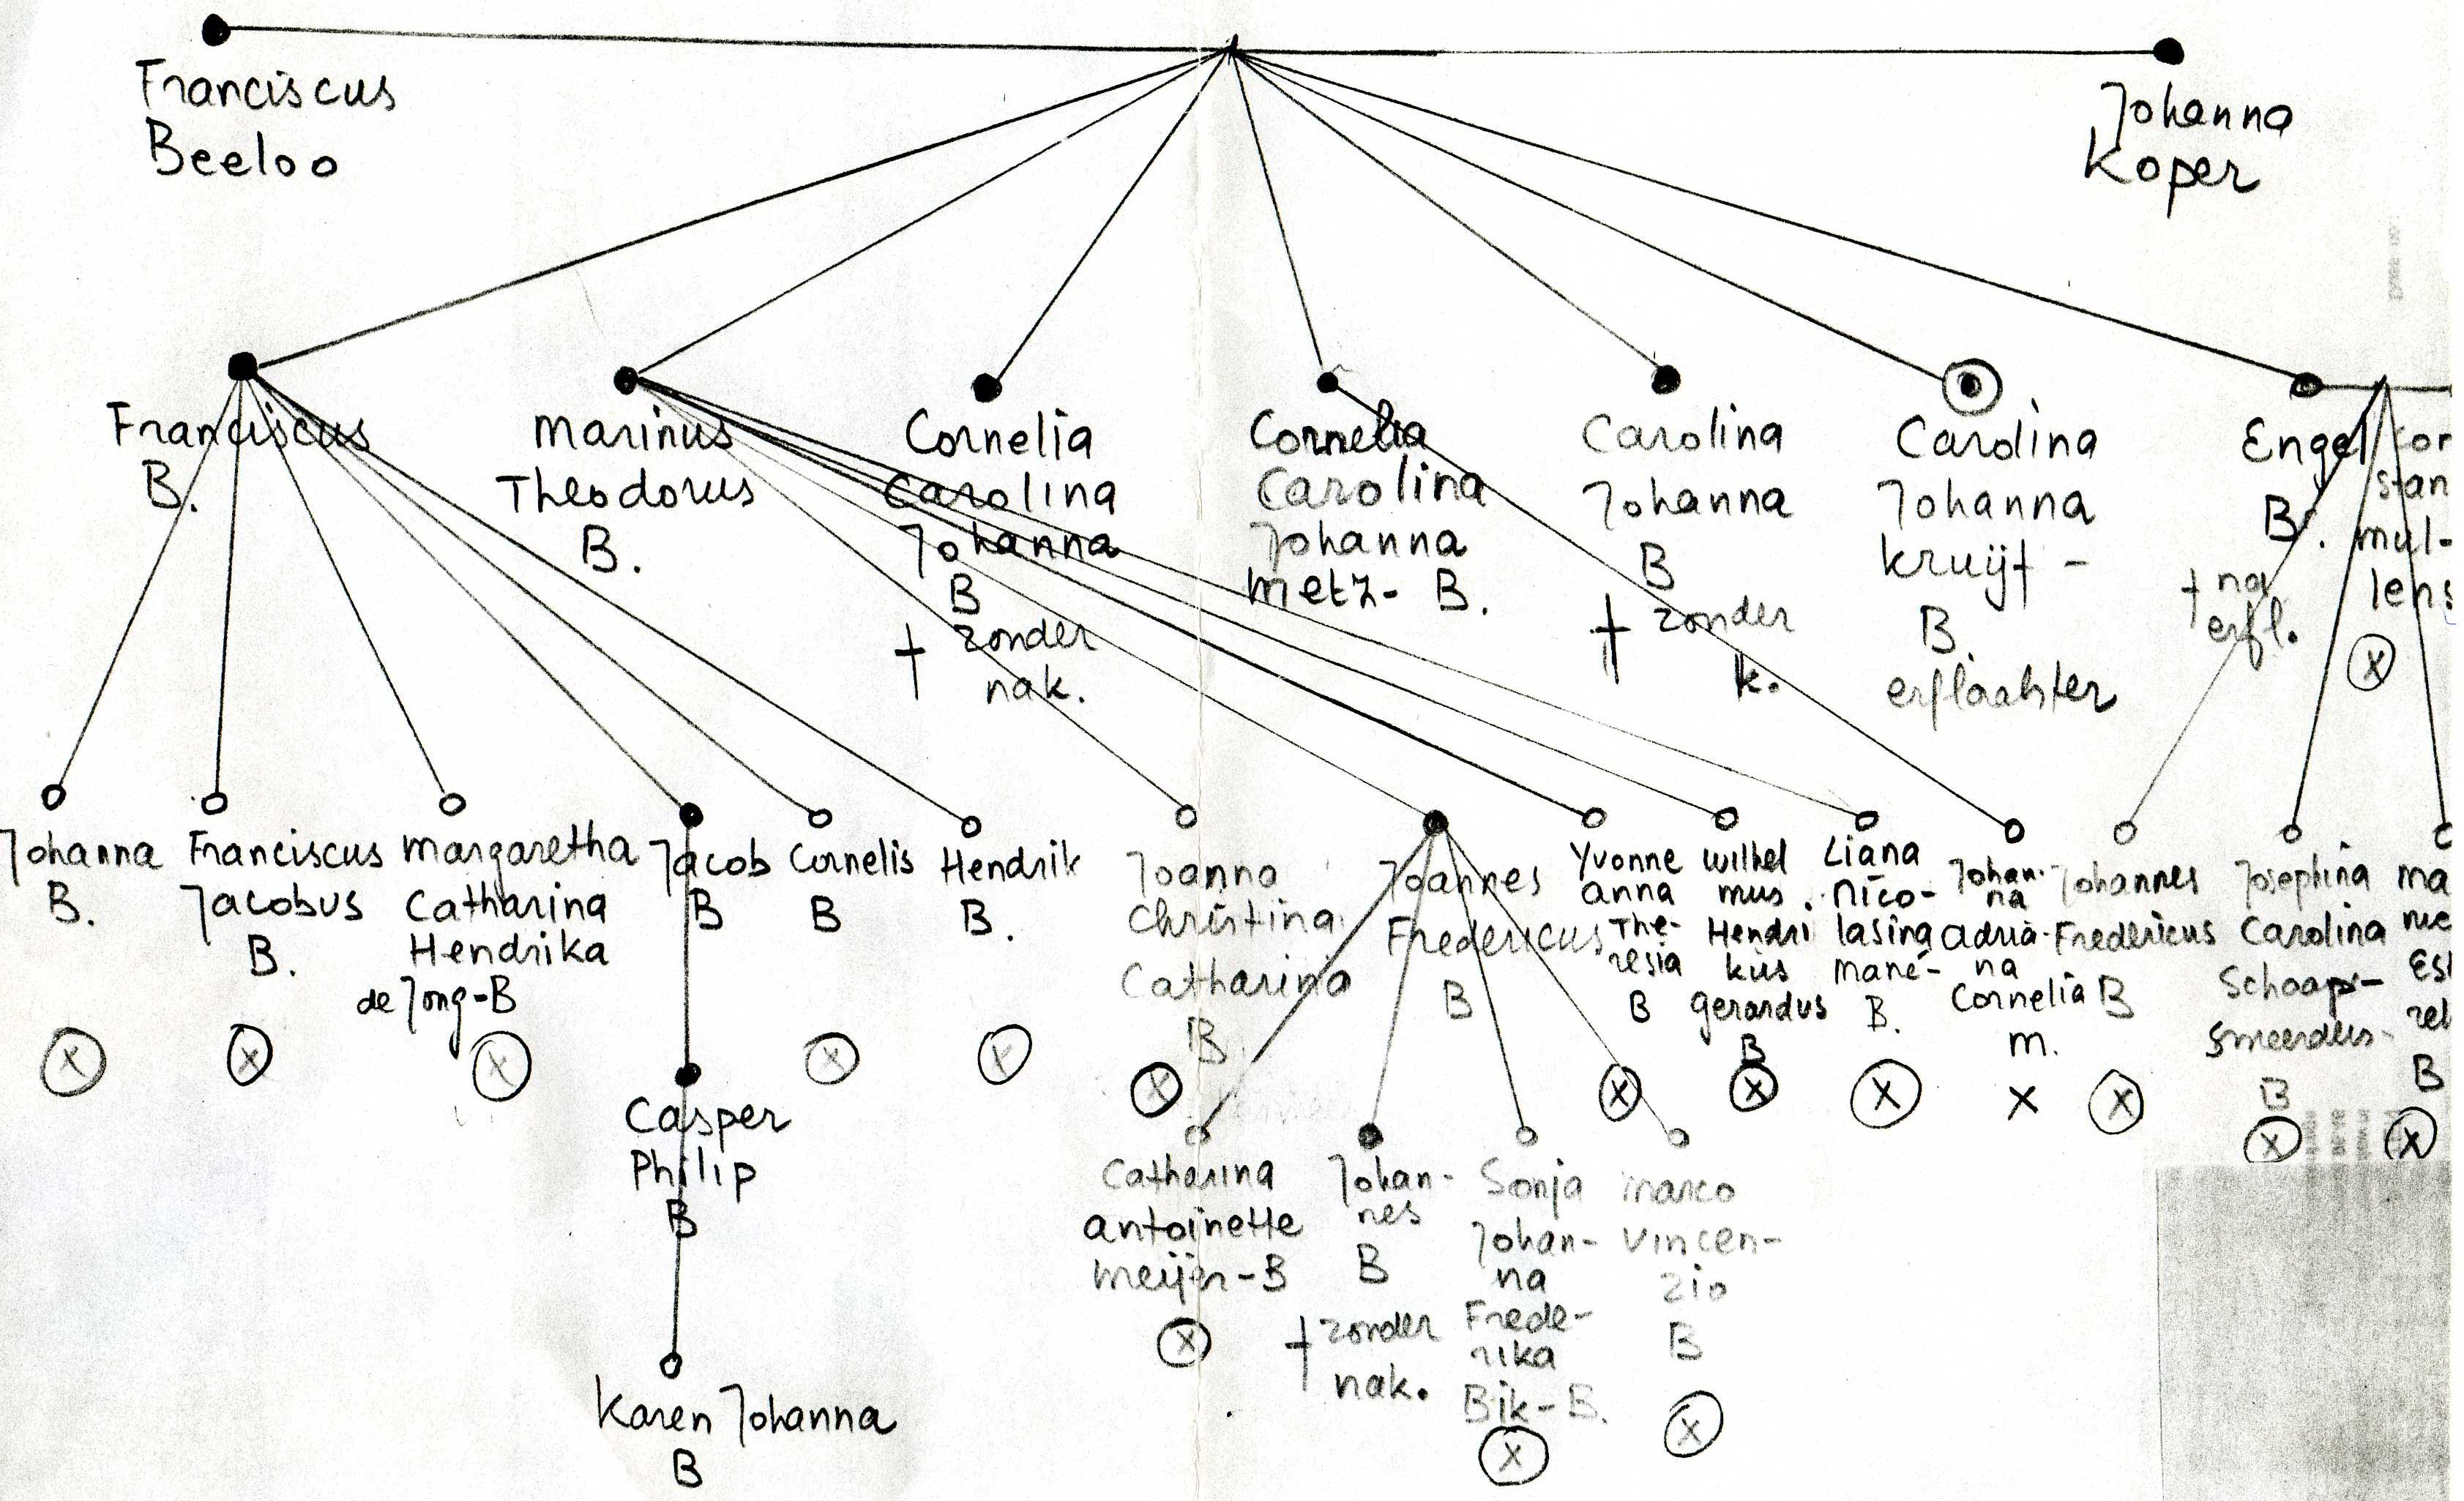 Franciscus
Beeloo
Johanna
Koper
Franciscus
B.
Marinus
Theodorus
B.
Cornelia
Carolina
Johanna
B
† zonder
nak.
Cornelia
Carolina
Johanna
Metz- B.
Carolina
Johanna
B
† zonder
k.
Carolina
Johanna
Kruijt -
B.
erflaatster
Engel
B.
† na
erfl.
Con
stan
mul-
lens
X
Johanna
B.
X
Franciscus
Jacobus
B.
X
Margaretha
Catharina
Hendrika
de Jong-B
X
Jacob
B
Cornelis
B
X
Hendrik
B.
X
Joanna
Christina
Catharina
B.
X
Joannes
Fredericus
B
Yvonne
Anna
The-
resia
B
X
Wilhel
mus
Hendri
kus
Gerardus
B
X
Liana
Nico-
lasina
Marie-
B.
X
Johan-
na
Adria-
na
Cornelia
M.
X
Johannes
Fredericus
B
X
Josephina
Carolina
Schaap-
Smeerders-
B
X
Ma
B
X
Casper
Philip
B
Karen Johanna
B
Catharina
Antoinette
Meijer-B
X
Johan-
nes
B
† zonder
nak.
Sonja
Johan-
na
Frede-
rika
Bik-B.
X
Marco
Vincen-
zio
B
X